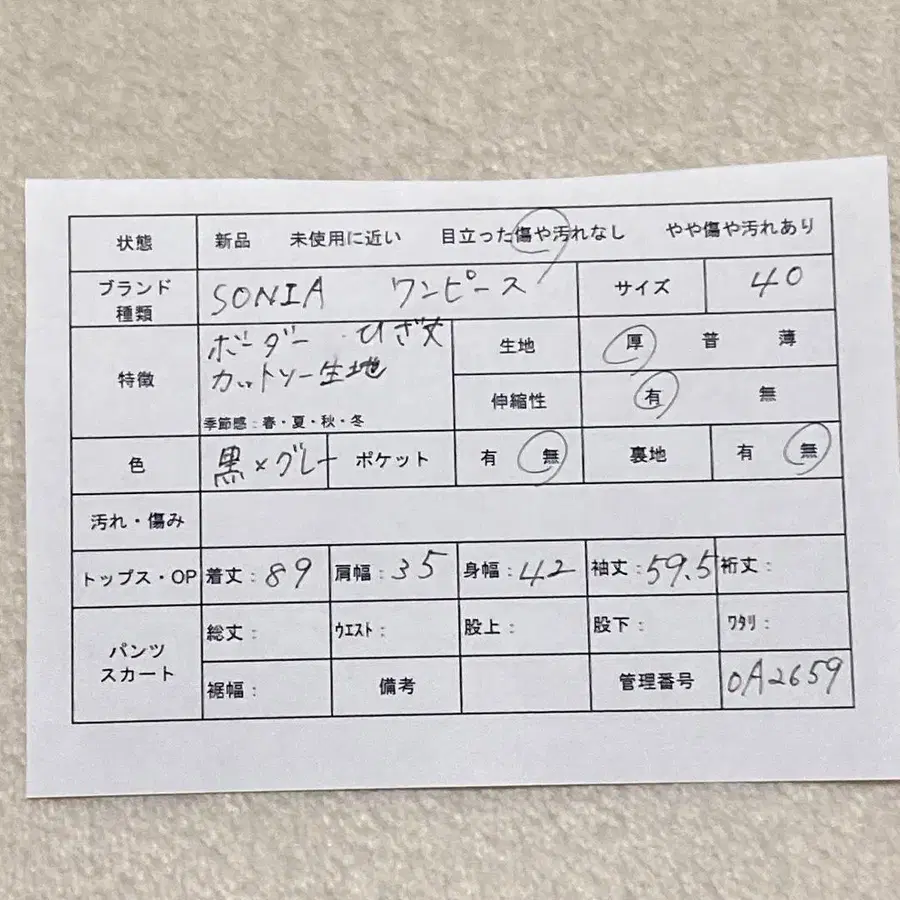 状態 新品 未使用に近い 目立った傷や汚れなし やや傷や汚れあり
ブランド 種類 SONIA ワンピース サイズ 40
特徴 ボーダー ひざ丈
カットソー生地
季節感：春・夏・秋・冬
生地 厚 普 薄
伸縮性 有 無
色 黒×グレー ポケット 有 無 裏地 有 無
汚れ・傷み
トップス・OP 着丈：89 肩幅：35 身幅：42 袖丈：59.5 裄丈：
パンツ スカート 総丈： ウエスト： 股上： 股下： ワタリ：
裾幅： 備考 管理番号 0A2659